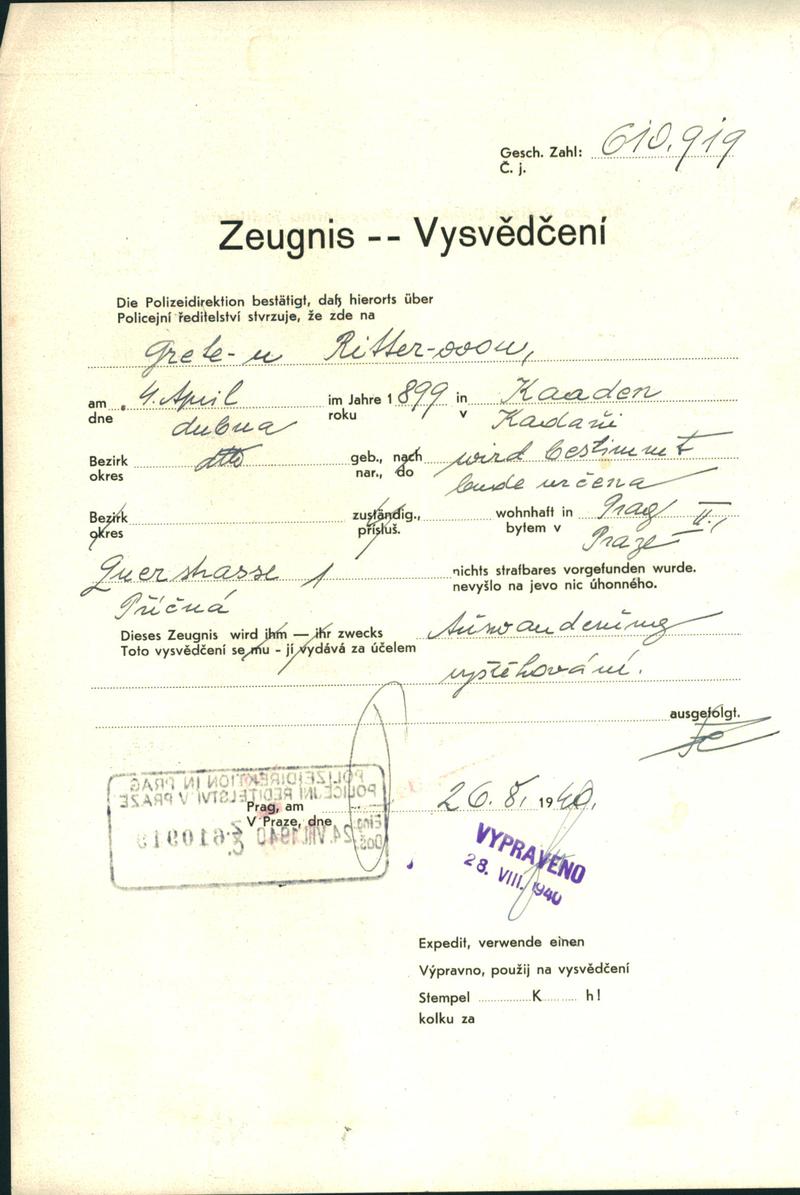 Gesch. Zahl: 610.919
Č. j.
Zeugnis -- Vysvědčení
Die Polizeidirektion bestätigt, daß hierorts über
Policejní ředitelství stvrzuje, že zde na
Grete-u Ritter-ovou,
am 4. April im Jahre 1899 in Kaaden
dne dubna roku v Kadani
Bezirk dtto geb., nach wird bestimmt
okres nar., do bude určena
Bezirk zuständig., wohnhaft in Prag II.,
okres přísluš. bytem v Praze
Querstrasse 1 nichts strafbares vorgefunden wurde.
Příčná nevyšlo na jevo nic úhonného.
Dieses Zeugnis wird ihm — ihr zwecks Auswanderung
Toto vysvědčení se mu - jí vydává za účelem
vystěhování.
ausgefolgt.
POLIZEIDIREKTION IN PRAG
POLICEJNÍ ŘEDITELSTVÍ V PRAZE
Prag, am 26.8. 1940.
V Praze, dne
Eing.
Doš. 24.VIII.1940 Z. Č. 610919
VYPRAVENO
28. VIII. 1940
Expedit, verwende einen
Výpravno, použij na vysvědčení
Stempel K h!
kolku za